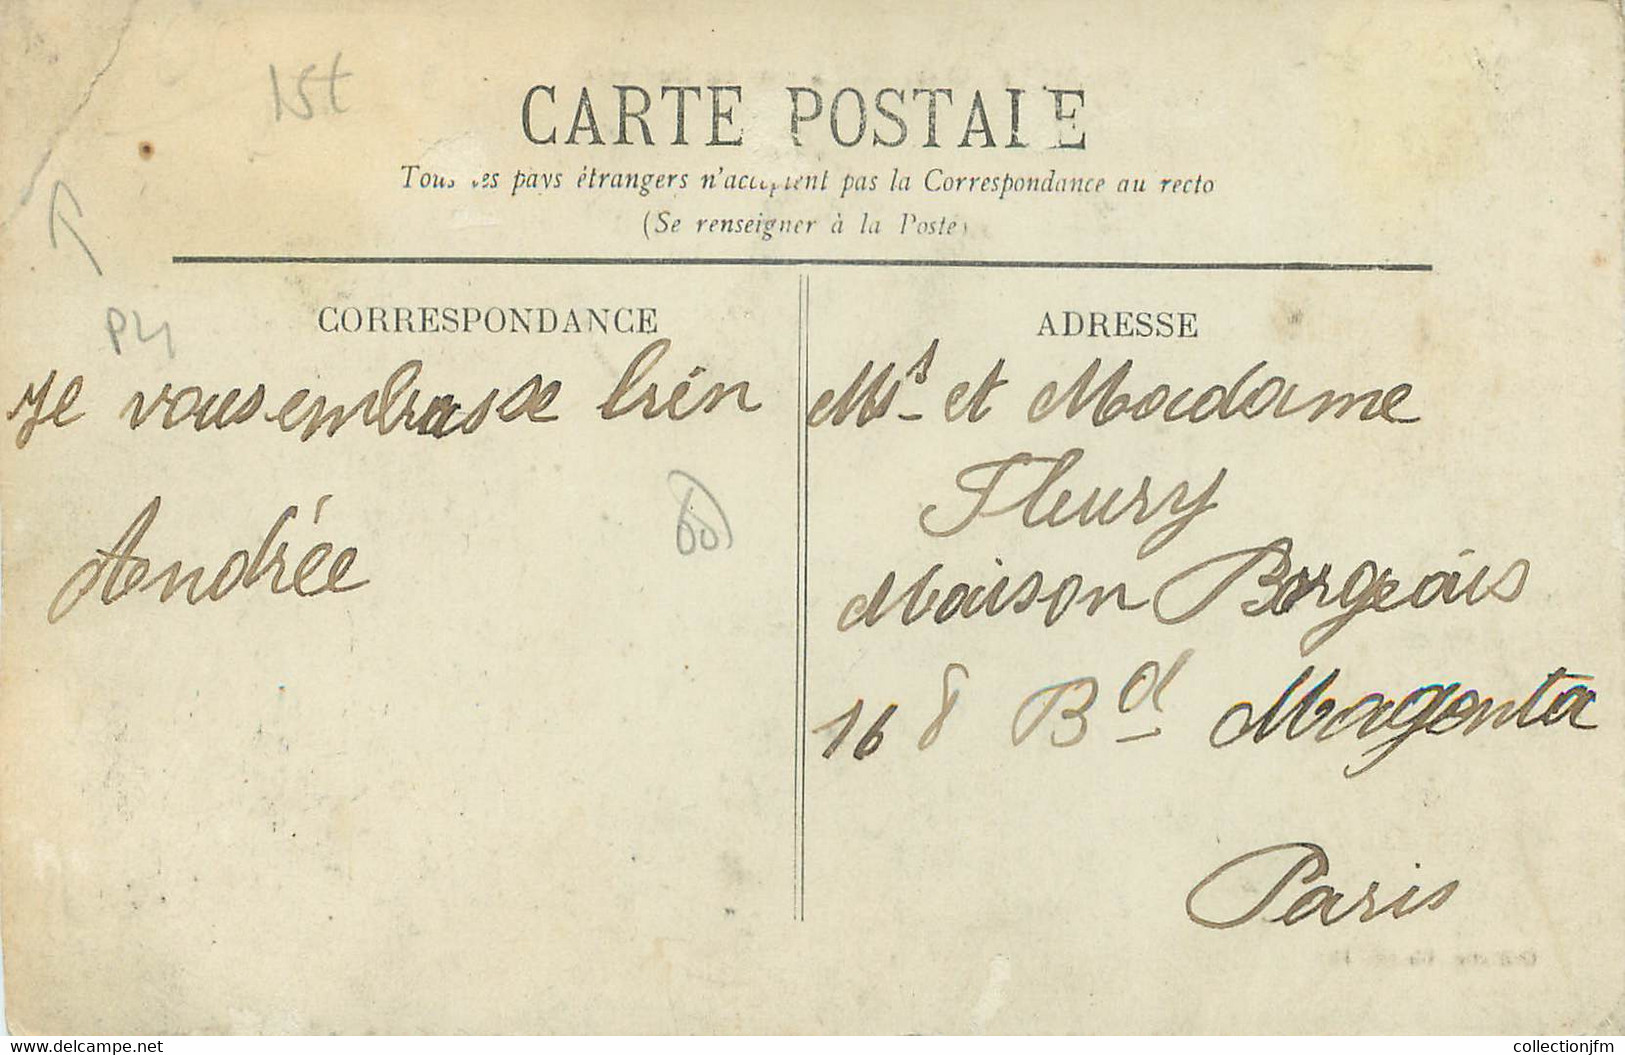 15t
CARTE POSTALE
Tous les pays étrangers n'acceptent pas la Correspondance au recto
(Se renseigner à la Poste)
CORRESPONDANCE
P4
Je vous embrasse bien
Andrée
60
ADRESSE
Mr et Madame
Fleury
Maison Borgeais
168 Bd Magenta
Paris
www.delcampe.net
collectionjfm